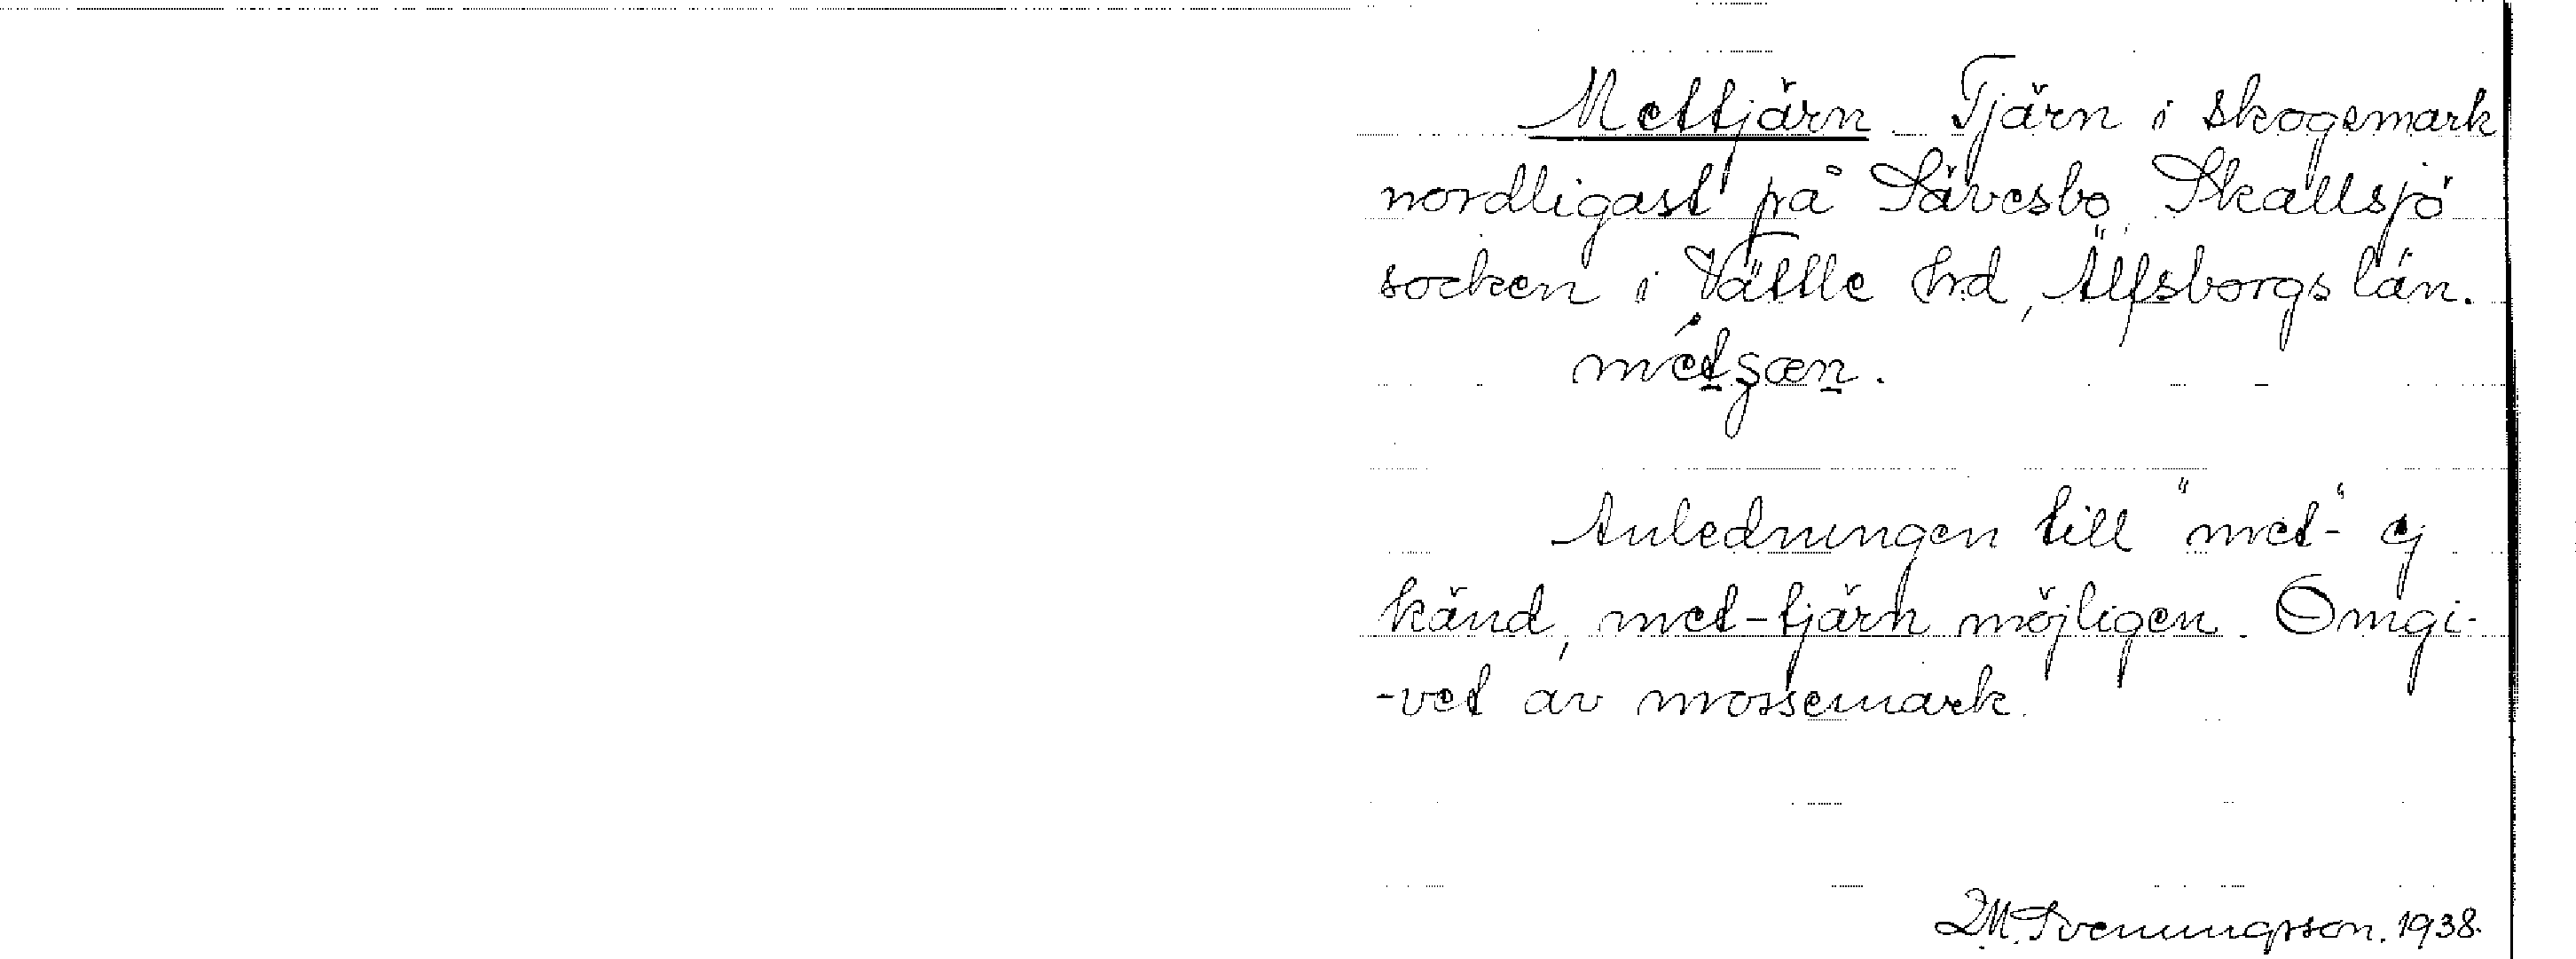 Mettjärn Tjärn i skogsmark
nordligast på Sävesbo, Skallsjö
socken i Vättle hrd, Älfsborgs län.
Anledningen till "met-" ej
känd, met-tjärn möjligen. Omgi-
-vet av mossemark.
D.M. Svenungsson. 1938.